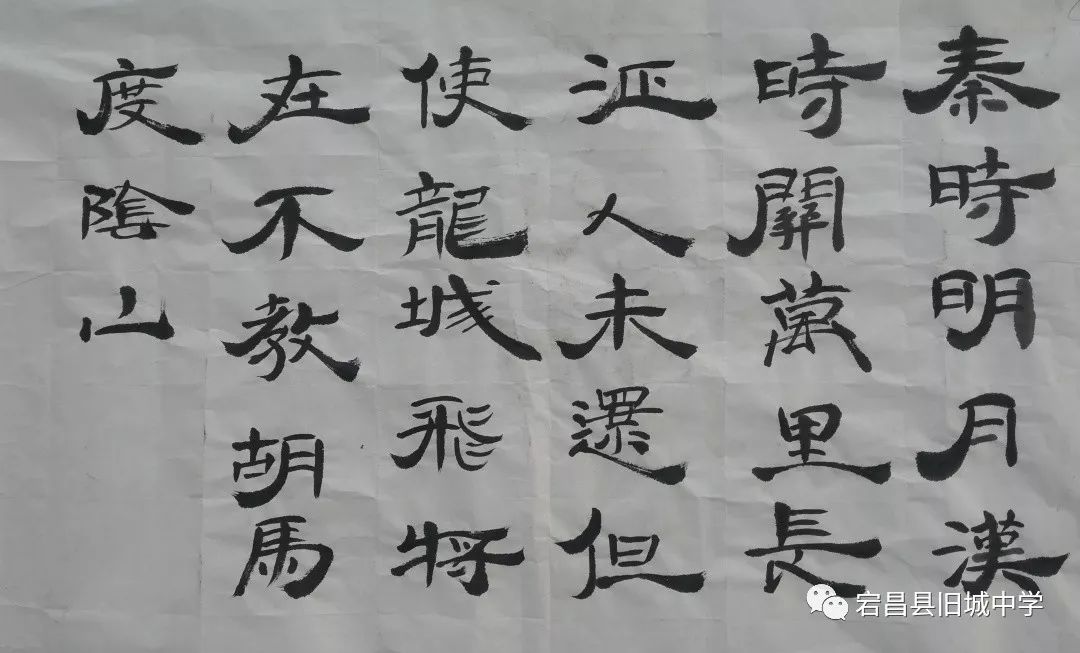 秦時明月漢
時關萬里長
征人未還但
使龍城飛將
在不教胡馬
度陰山
宕昌县旧城中学